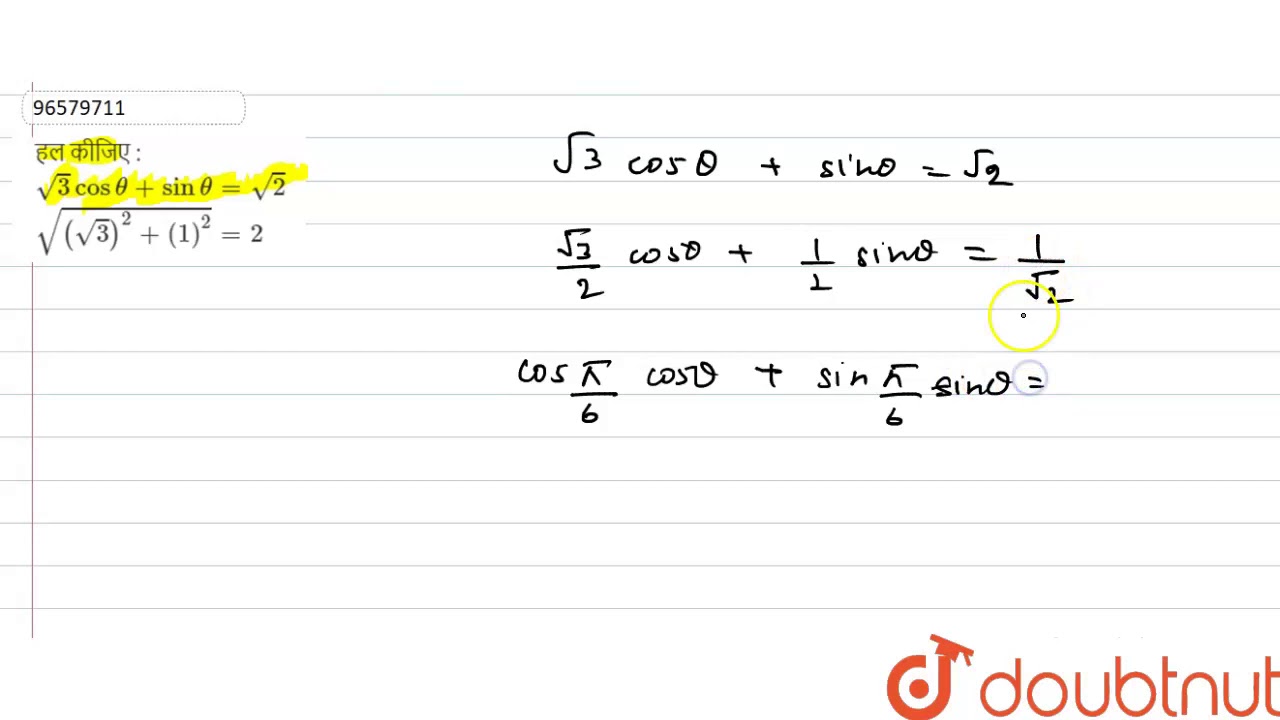 96579711
हल कीजिए :
√3 cos θ + sin θ = √2
√((√3)² + (1)²) = 2
√3 cosθ + sinθ = √2
√3/2 cosθ + 1/2 sinθ = 1/√2
cos π/6 cosθ + sin π/6 sinθ =
doubtnut